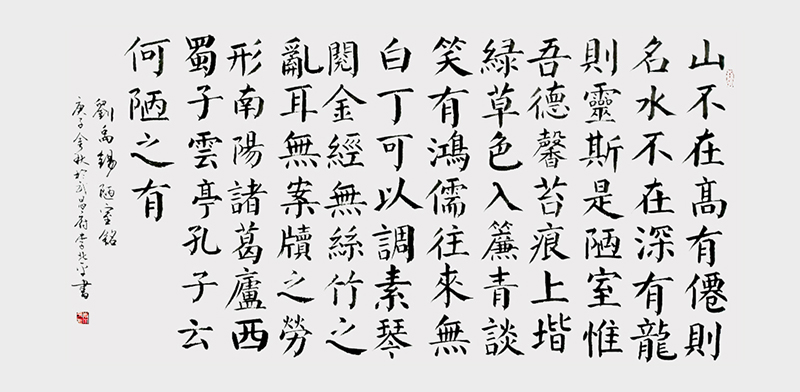 山不在髙有僊則
名水不在深有龍
則靈斯是陋室惟
吾德馨苔痕上堦
緑草色入簾青談
笑有鴻儒往來無
白丁可以調素琴
閱金經無絲竹之
亂耳無案牘之勞
形南陽諸葛廬西
蜀子雲亭孔子云
何陋之有
劉禹錫陋室銘
庚子金秋於武昌府李書